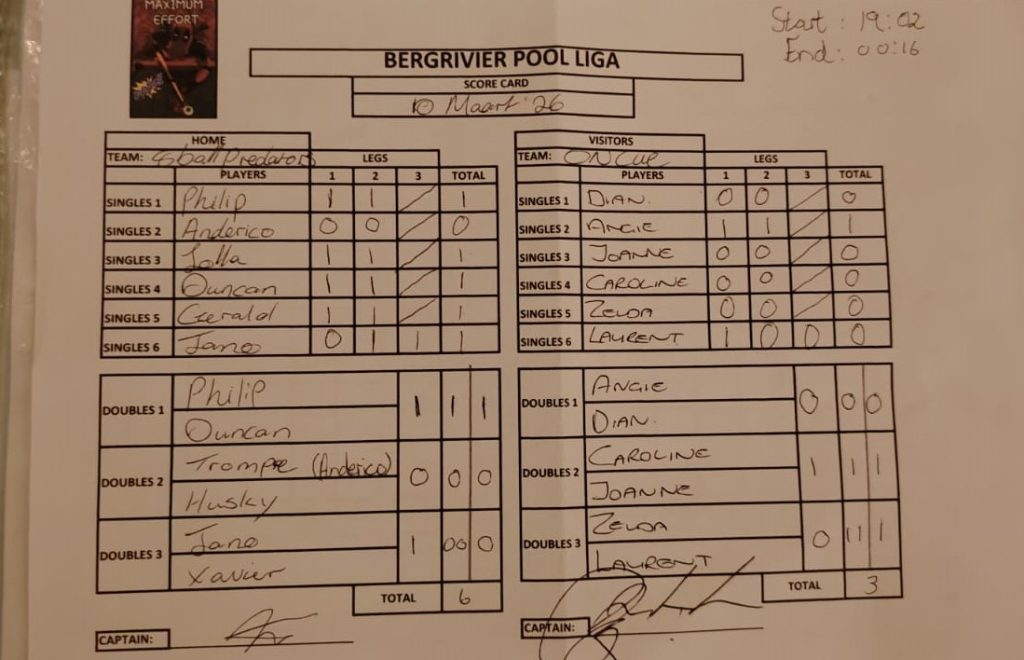 MAXIMUM
EFFORT
Start : 19:02
End: 00:16
BERGRIVIER POOL LIGA
SCORE CARD
10 Maart '26
HOME
TEAM: 9ball Predators LEGS
PLAYERS 1 2 3 TOTAL
SINGLES 1 Philip 1 1 / 1
SINGLES 2 Anderico 0 0 / 0
SINGLES 3 Lolla 1 1 / 1
SINGLES 4 Duncan 1 1 / 1
SINGLES 5 Gerald 1 1 / 1
SINGLES 6 Jano 0 1 1 1
VISITORS
TEAM: ON CUE LEGS
PLAYERS 1 2 3 TOTAL
SINGLES 1 DIAN. 0 0 / 0
SINGLES 2 ANGIE 1 1 / 1
SINGLES 3 JOANNE 0 0 / 0
SINGLES 4 CAROLINE 0 0 / 0
SINGLES 5 ZELDA 0 0 / 0
SINGLES 6 LAURENT 1 0 0 0
DOUBLES 1 Philip 1 1 1
Duncan
DOUBLES 2 Trompie (Anderico) 0 0 0
Husky
DOUBLES 3 Jano 1 00 0
Xavier
TOTAL 6
CAPTAIN:
DOUBLES 1 ANGIE 0 0 0
DIAN.
DOUBLES 2 CAROLINE 1 1 1
JOANNE
DOUBLES 3 ZELDA 0 11 1
LAURENT
TOTAL 3
CAPTAIN: